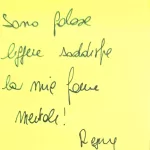 Sono golose
leggere soddisfa
la mia fame
mentale!